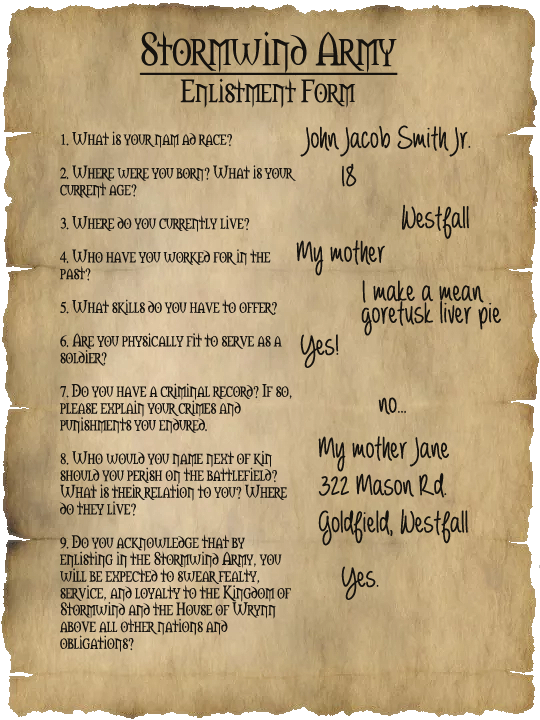 Stormwind Army
Enlistment Form
1. What is your nam ad race?
John Jacob Smith Jr.
2. Where were you born? What is your
current age?
18
3. Where do you currently live?
Westfall
4. Who have you worked for in the
past?
My mother
5. What skills do you have to offer?
I make a mean
goretusk liver pie
6. Are you physically fit to serve as a
soldier?
Yes!
7. Do you have a criminal record? If so,
please explain your crimes and
punishments you endured.
no...
8. Who would you name next of kin
should you perish on the battlefield?
What is their relation to you? Where
do they live?
My mother Jane
322 Mason Rd.
Goldfield, Westfall
9. Do you acknowledge that by
enlisting in the Stormwind Army, you
will be expected to swear fealty,
service, and loyalty to the Kingdom of
Stormwind and the House of Wrynn
above all other nations and
obligations?
Yes.